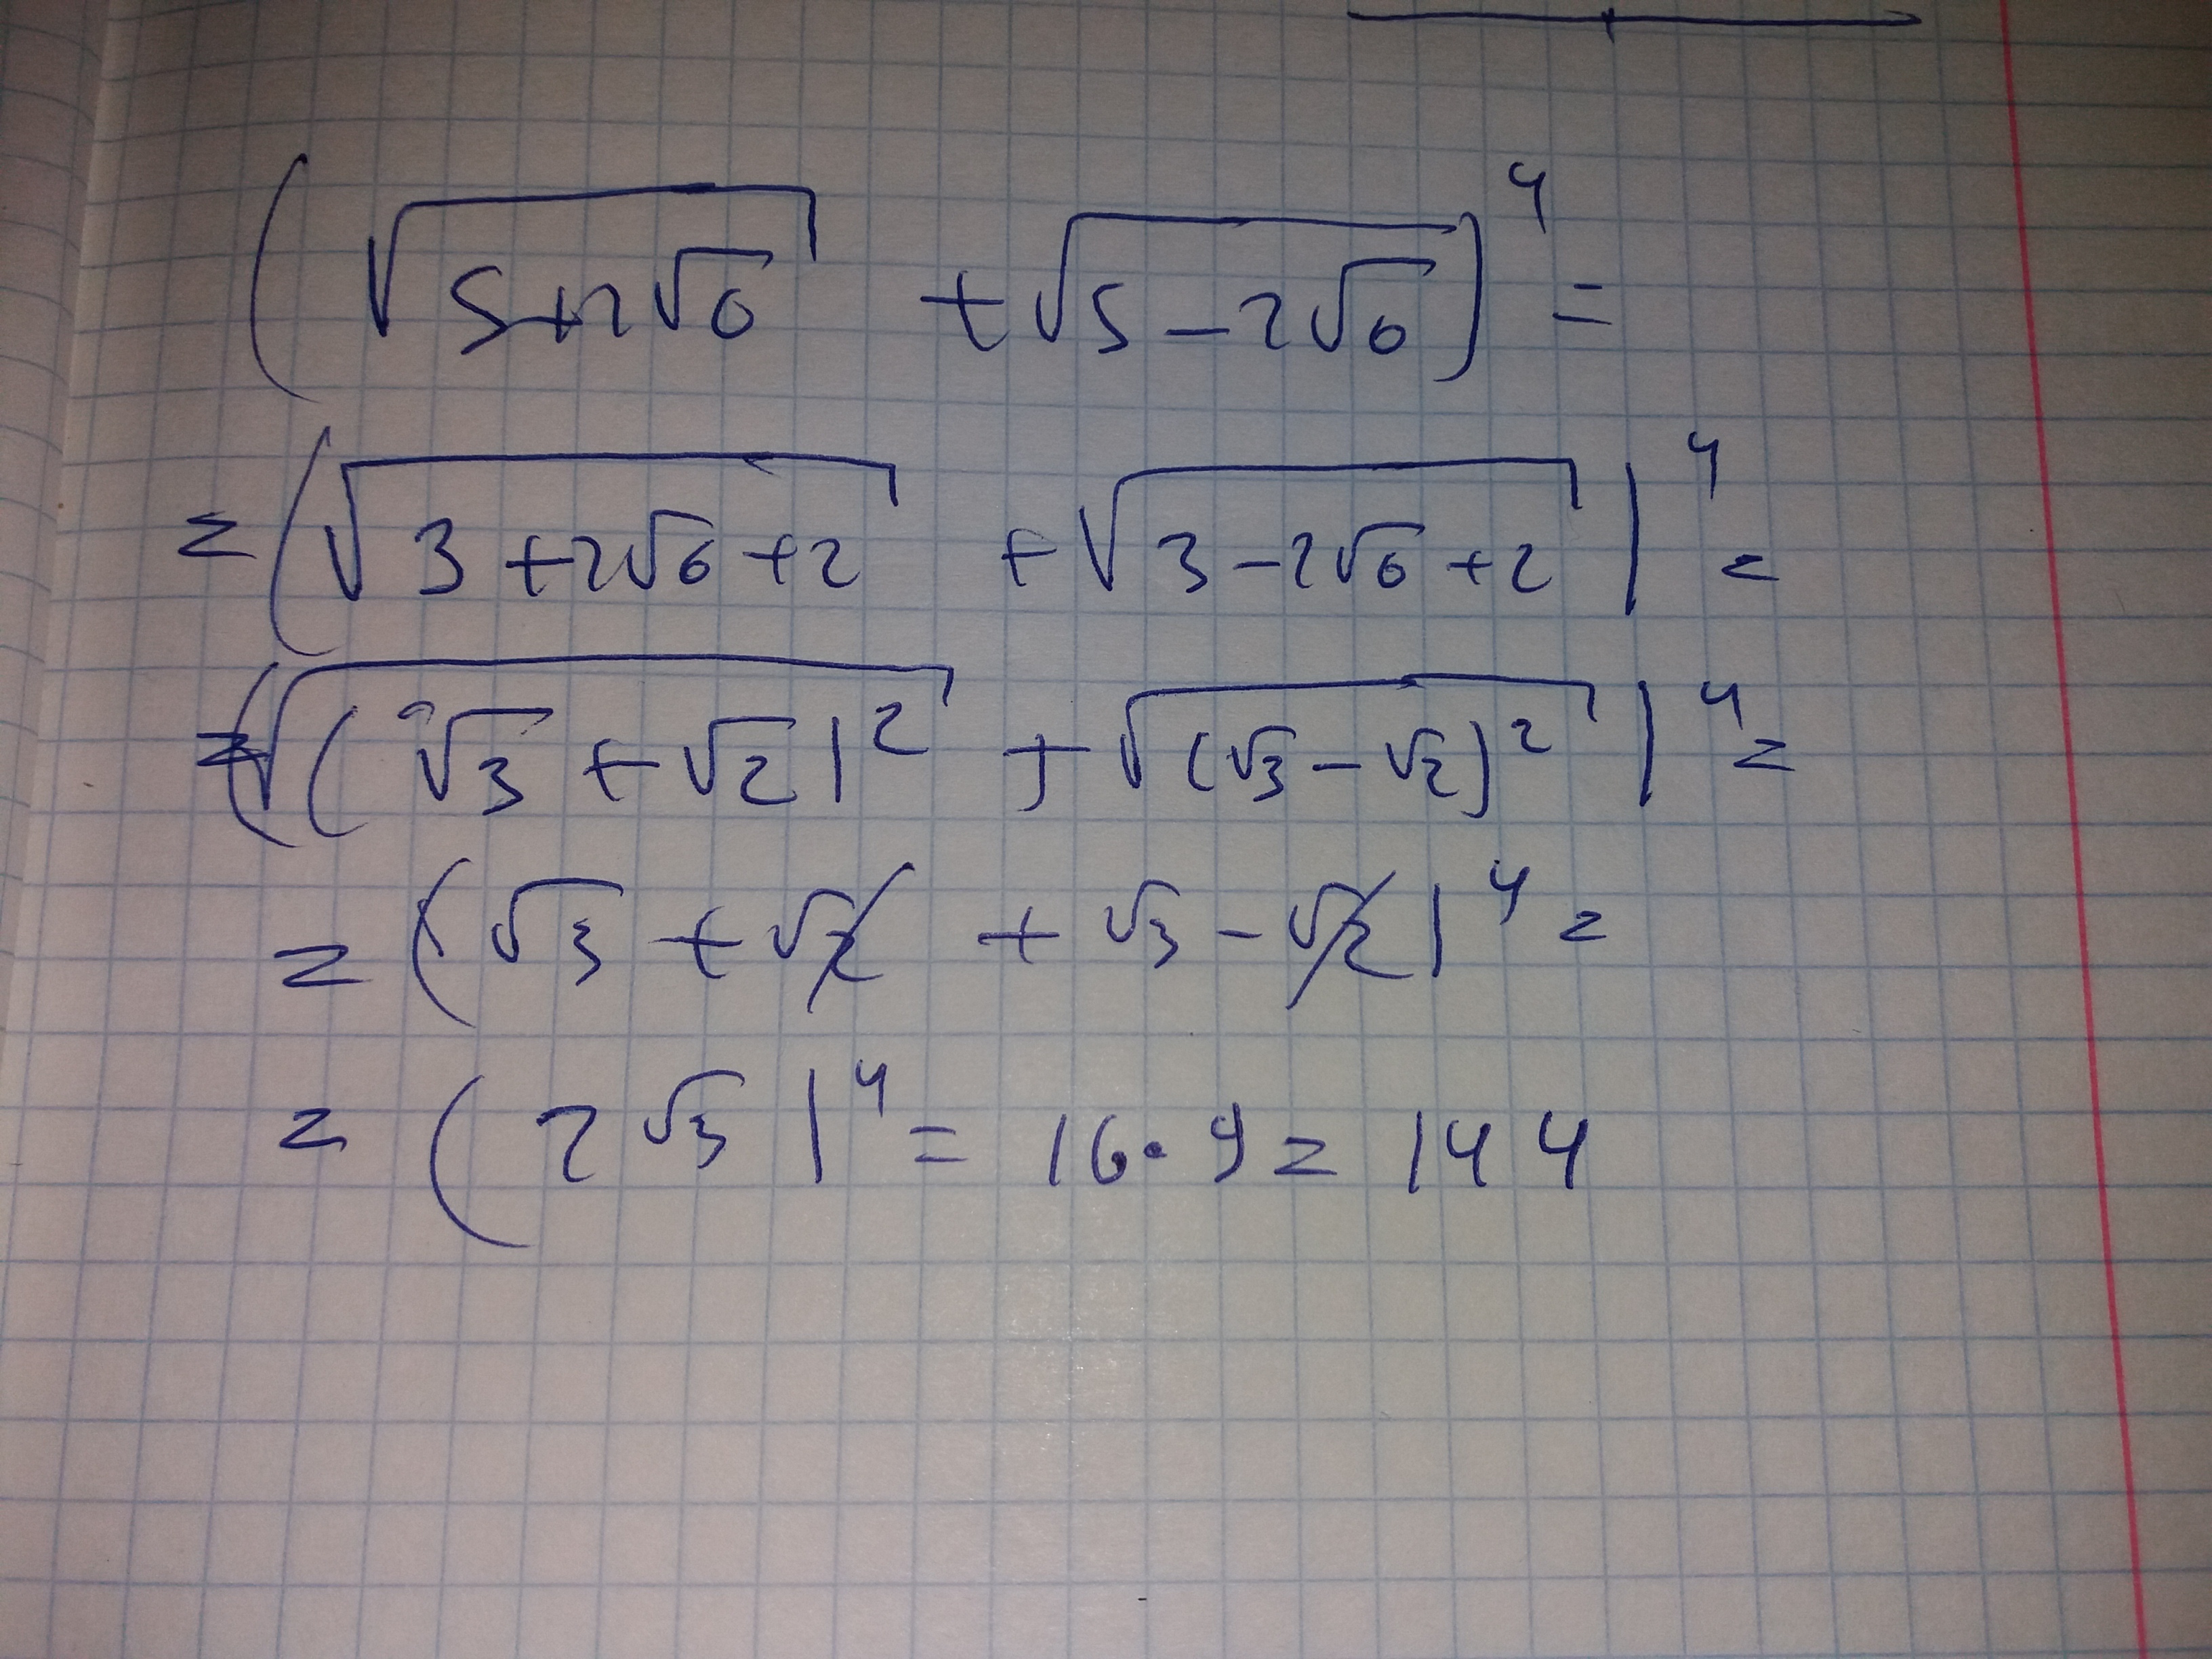 (√(5+2√6) + √(5-2√6))⁴ =
= (√(3+2√6+2) + √(3-2√6+2))⁴ =
= (√((√3+√2)²) + √((√3-√2)²))⁴ =
= (√3+√2 + √3-√2)⁴ =
= (2√3)⁴ = 16·9 = 144